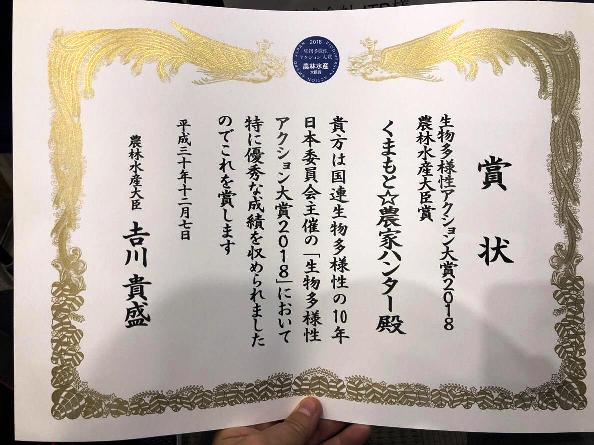 賞状
生物多様性アクション大賞2018
農林水産大臣賞
くまもと☆農家ハンター 殿
貴方は国連生物多様性の10年
日本委員会主催の「生物多様性
アクション大賞2018」において
特に優秀な成績を収められました
のでこれを賞します
平成三十年十二月七日
農林水産大臣 吉川貴盛
2018
生物多様性
アクション大賞
農林水産
大臣賞